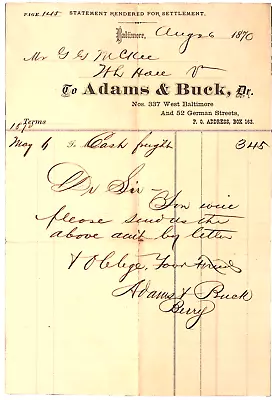 PAGE 1248 STATEMENT RENDERED FOR SETTLEMENT.
Baltimore, Aug 6 1870
Mr G G McKee
To Adams & Buck, Dr.
Nos. 337 West Baltimore
And 52 German Streets,
P. O. ADDRESS, BOX 163.
Terms
1870
May 6 To Cash freight 3 45
Dr Sir You will
please send us the
above amt by letter
& Oblege, Your Friends
Adams & Buck